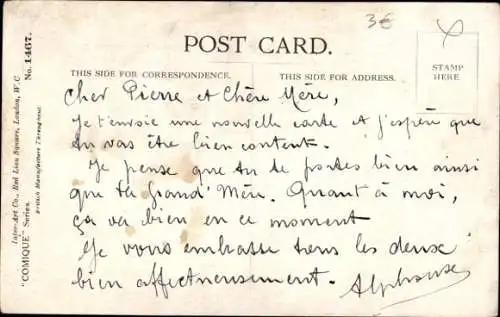 3€
POST CARD.
THIS SIDE FOR CORRESPONDENCE.
THIS SIDE FOR ADDRESS.
STAMP
HERE
Inter-Art Co., Red Lion Square, London, W.C
British Manufacture Throughout.
"COMIQUE" Series. No. 1467.
Cher Pierre et Chère Mère,
Je t'envoie une nouvelle carte et j'espère que
tu vas être bien content.
Je pense que tu te portes bien ainsi
que ta Grand' Mère. Quant à moi,
ça va bien en ce moment
Je vous embrasse tous les deux
bien affectueusement. Alphonse